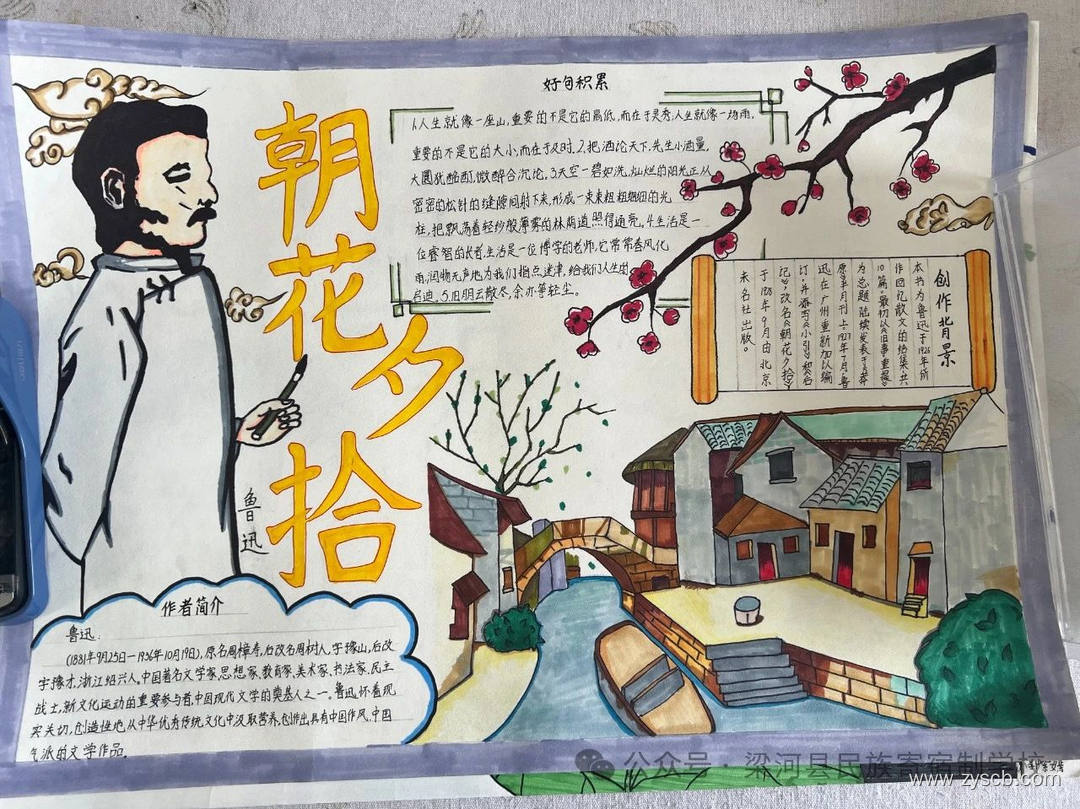 朝花夕拾
鲁迅
好句积累
1.人生就像一座山,重要的不是它的高低,而在于灵秀;人生就像一场雨,
重要的不是它的大小,而在于及时。2.把酒论天下,先生小酒量,
大圜犹酩酊,微醉合沉沦。3.天空一碧如洗,灿烂的阳光正从
密密的松针的缝隙间射下来,形成一束束粗粗细细的光
柱,把飘荡着轻纱般薄雾的林荫道照得通亮。4.生活是一
位睿智的长者,生活是一位博学的老师,它常常春风化
雨,润物无声地为我们指点迷津,给我们人生的
启迪。5.旧朋云散尽,余亦等轻尘。
创作背景
本书为鲁迅于1926年所
作回忆散文的结集,共
10篇。最初以《旧事重提》
为总题陆续发表于《莽
原》半月刊上。1927年7月,鲁
迅在广州重新加以编
订,并添写《小引》和《后
记》,改名《朝花夕拾》,
于1928年9月由北京
未名社出版。
作者简介
鲁迅:
(1881年9月25日—1936年10月19日),原名周樟寿,后改名周树人,字豫山,后改
字豫才,浙江绍兴人。中国著名文学家、思想家、教育家、美术家、书法家、民主
战士,新文化运动的重要参与者,中国现代文学的奠基人之一。鲁迅怀着现
实关切,创造性地从中华优秀传统文化中汲取营养,创作出具有中国作风、中国
气派的文学作品。
公众号·梁河县民族寄宿制学校
www.zyscb.com